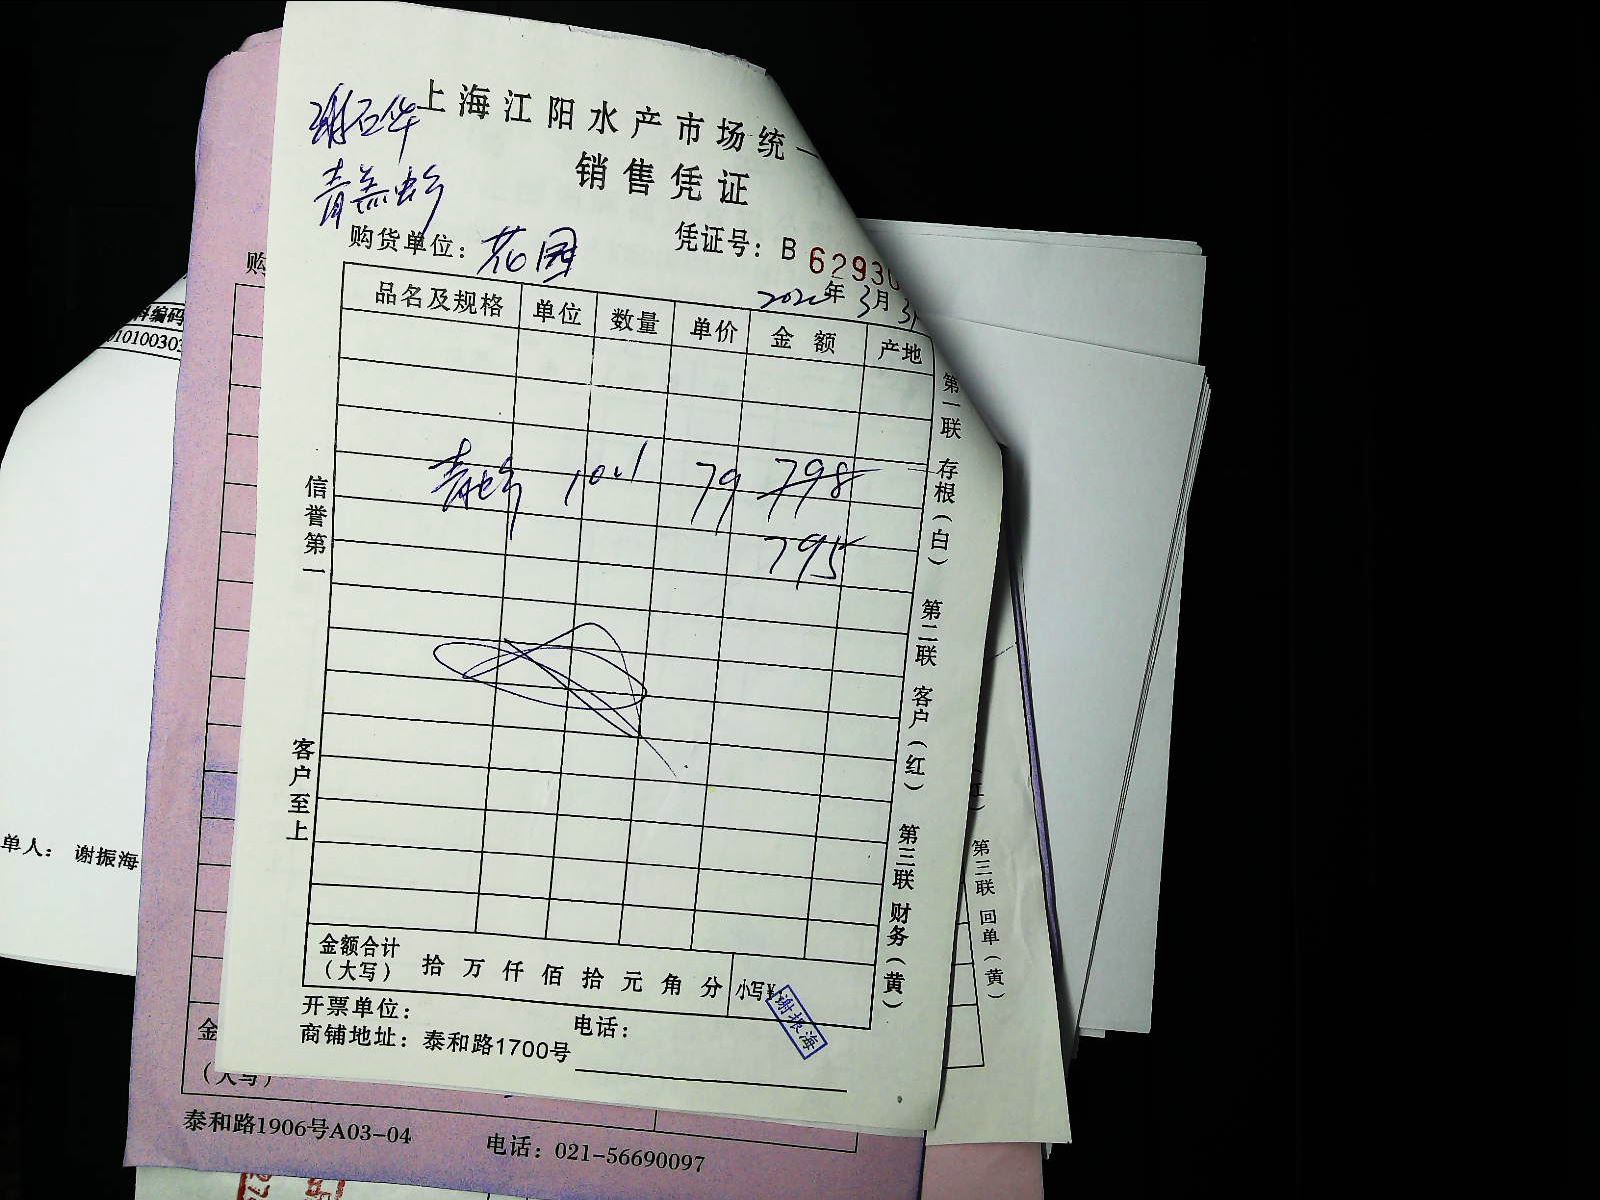 上海江阳水产市场统一
销售凭证
谢石华
青羔虫
购货单位：花园
凭证号：B 62930
202 年 3月 31
品名及规格 单位 数量 单价 金额 产地
10.1 79 798
795
信誉第一
客户至上
第一联 存根（白） 第二联 客户（红） 第三联 财务（黄）
金额合计（大写） 拾 万 仟 佰 拾 元 角 分 小写¥
谢振海
开票单位：
电话：
商铺地址：泰和路1700号
购
料编码
010100303
单人： 谢振海
金
（大写）
泰和路1906号A03-04
电话：021-56690097
第三联 回单（黄）